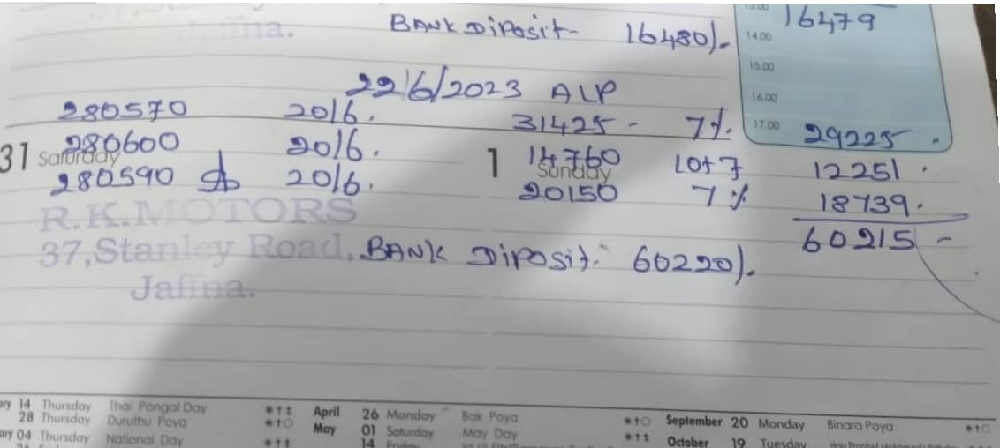 13.00 16479
BANK Diposit- 16480/-
14.00
15.00
22/6/2023 AIP
16.00
280570 20/6. 31425 - 7%. 17.00 29225.
31 Saturday 280600 20/6. 1 Sunday 14760 Lot 7 12251.
280590 20/6. 20150 7% 18739.
60215 -
R.K.MOTORS
37,Stanley Road, BANK Diposit. 60220/.
Jaffna.
14 Thursday Thai Pongal Day April 26 Monday Bak Poya September 20 Monday Binara Poya
28 Thursday Duruthu Poya May 01 Saturday May Day October 19 Tuesday
04 Thursday National Day 14 Friday